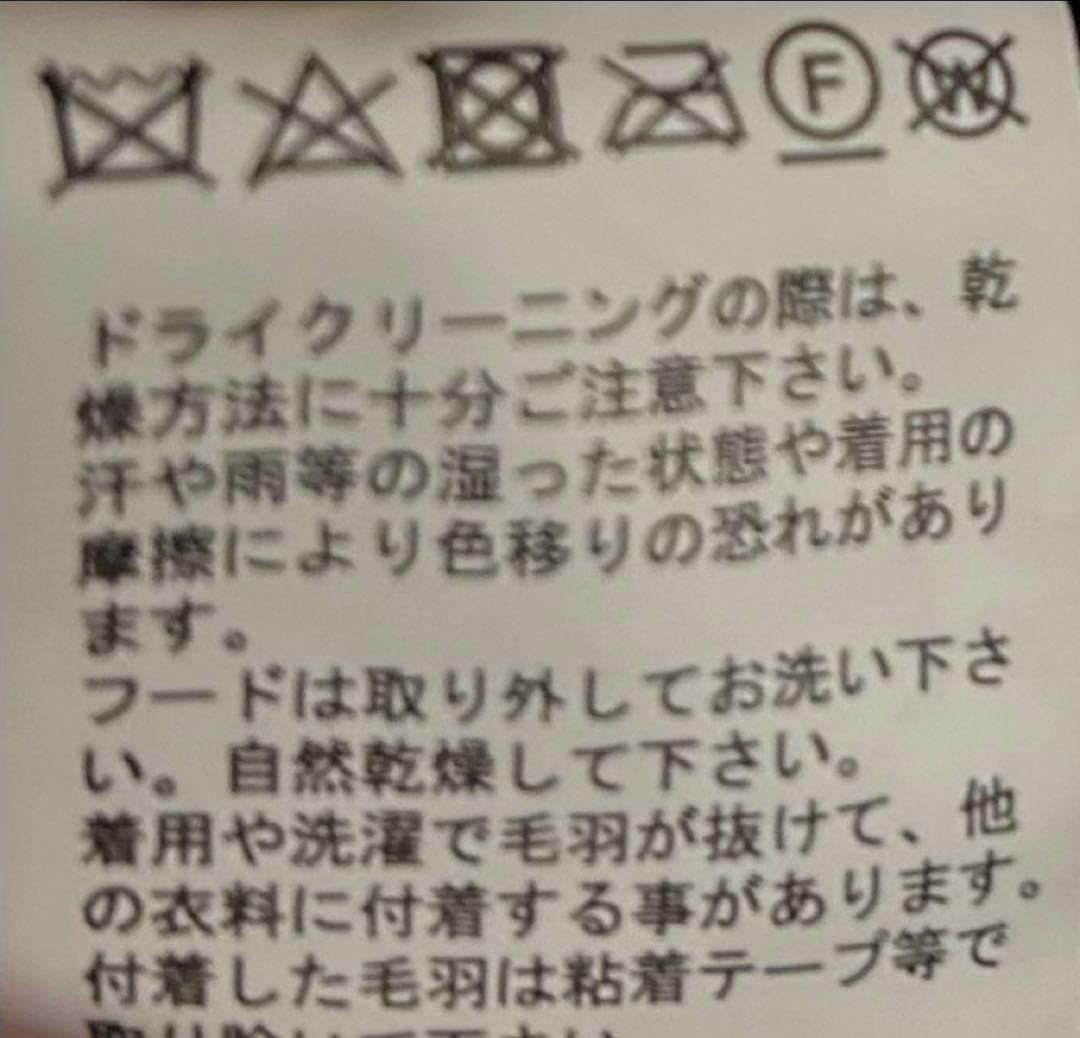 F W
ドライクリーニングの際は、乾
燥方法に十分ご注意下さい。
汗や雨等の湿った状態や着用の
摩擦により色移りの恐れがあり
ます。
フードは取り外してお洗い下さ
い。自然乾燥して下さい。
着用や洗濯で毛羽が抜けて、他
の衣料に付着する事があります。
付着した毛羽は粘着テープ等で
取り除いて下さい